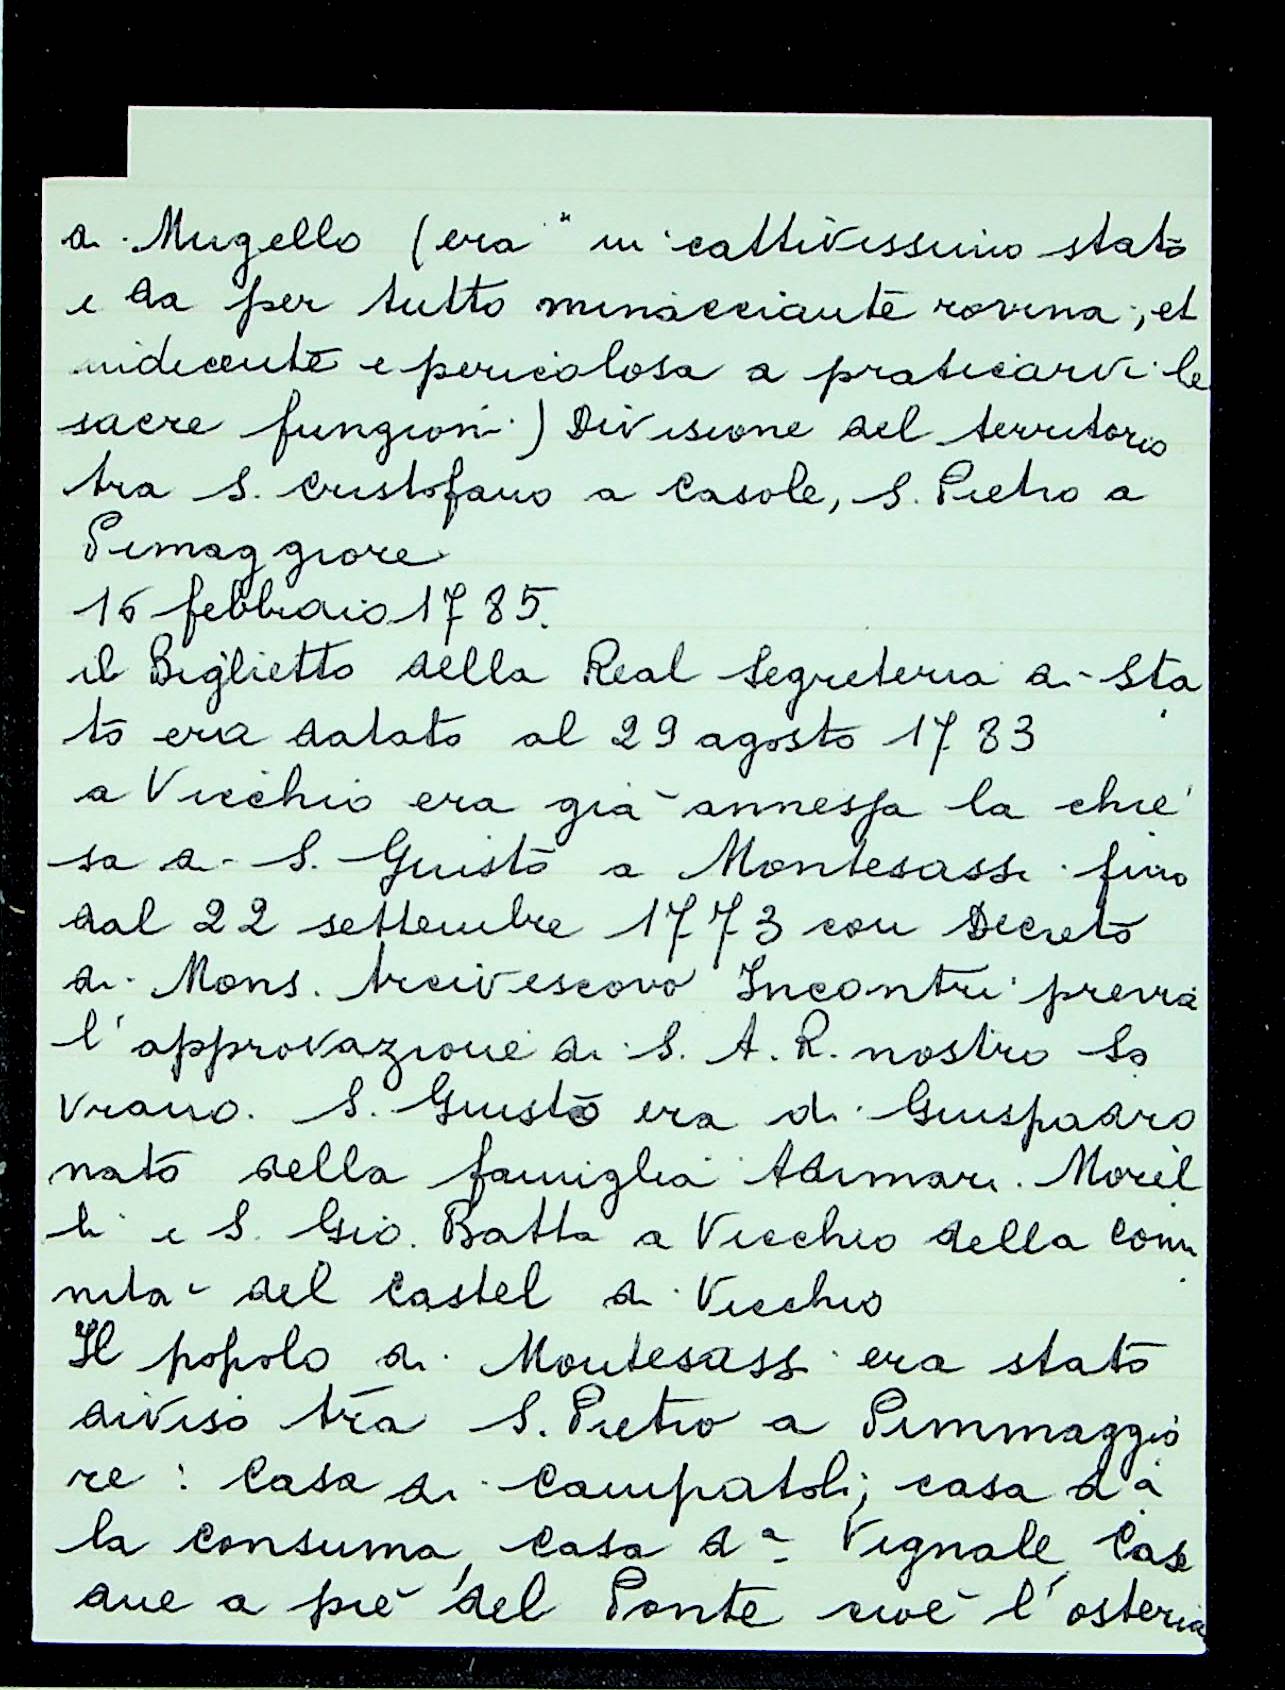 di Mugello (era " in cattivissimo stato
e da per tutto minacciante rovina, et
indecente e pericolosa a praticarvi le
sacre fungioni) Divisione del territorio
tra S. Cristofano a Casole, S. Pietro a
Pimaggiore
16 febbraio 1785.
il Biglietto della Real Segreteria di Sta
to era datato al 29 agosto 1783
a Vicchio era già annessa la chie
sa di S. Giusto a Montesassi fino
dal 22 settembre 1773 con Decreto
di Mons. Arcivescovo Incontri previa
l'approvazione di S. A. R. nostro So
vrano. S. Giusto era di Giuspadro
nato della famiglia Adimari Morel
li e S. Gio. Batta a Vicchio della Comu
nità del Castel di Vicchio
Il popolo di Montesassi era stato
diviso tra S. Pietro a Pimmaggio
re: Casa di Campatoli; casa d.a
la Consuma, Casa d.a Vignale, Case
due a piè del Ponte cioè l'osteria